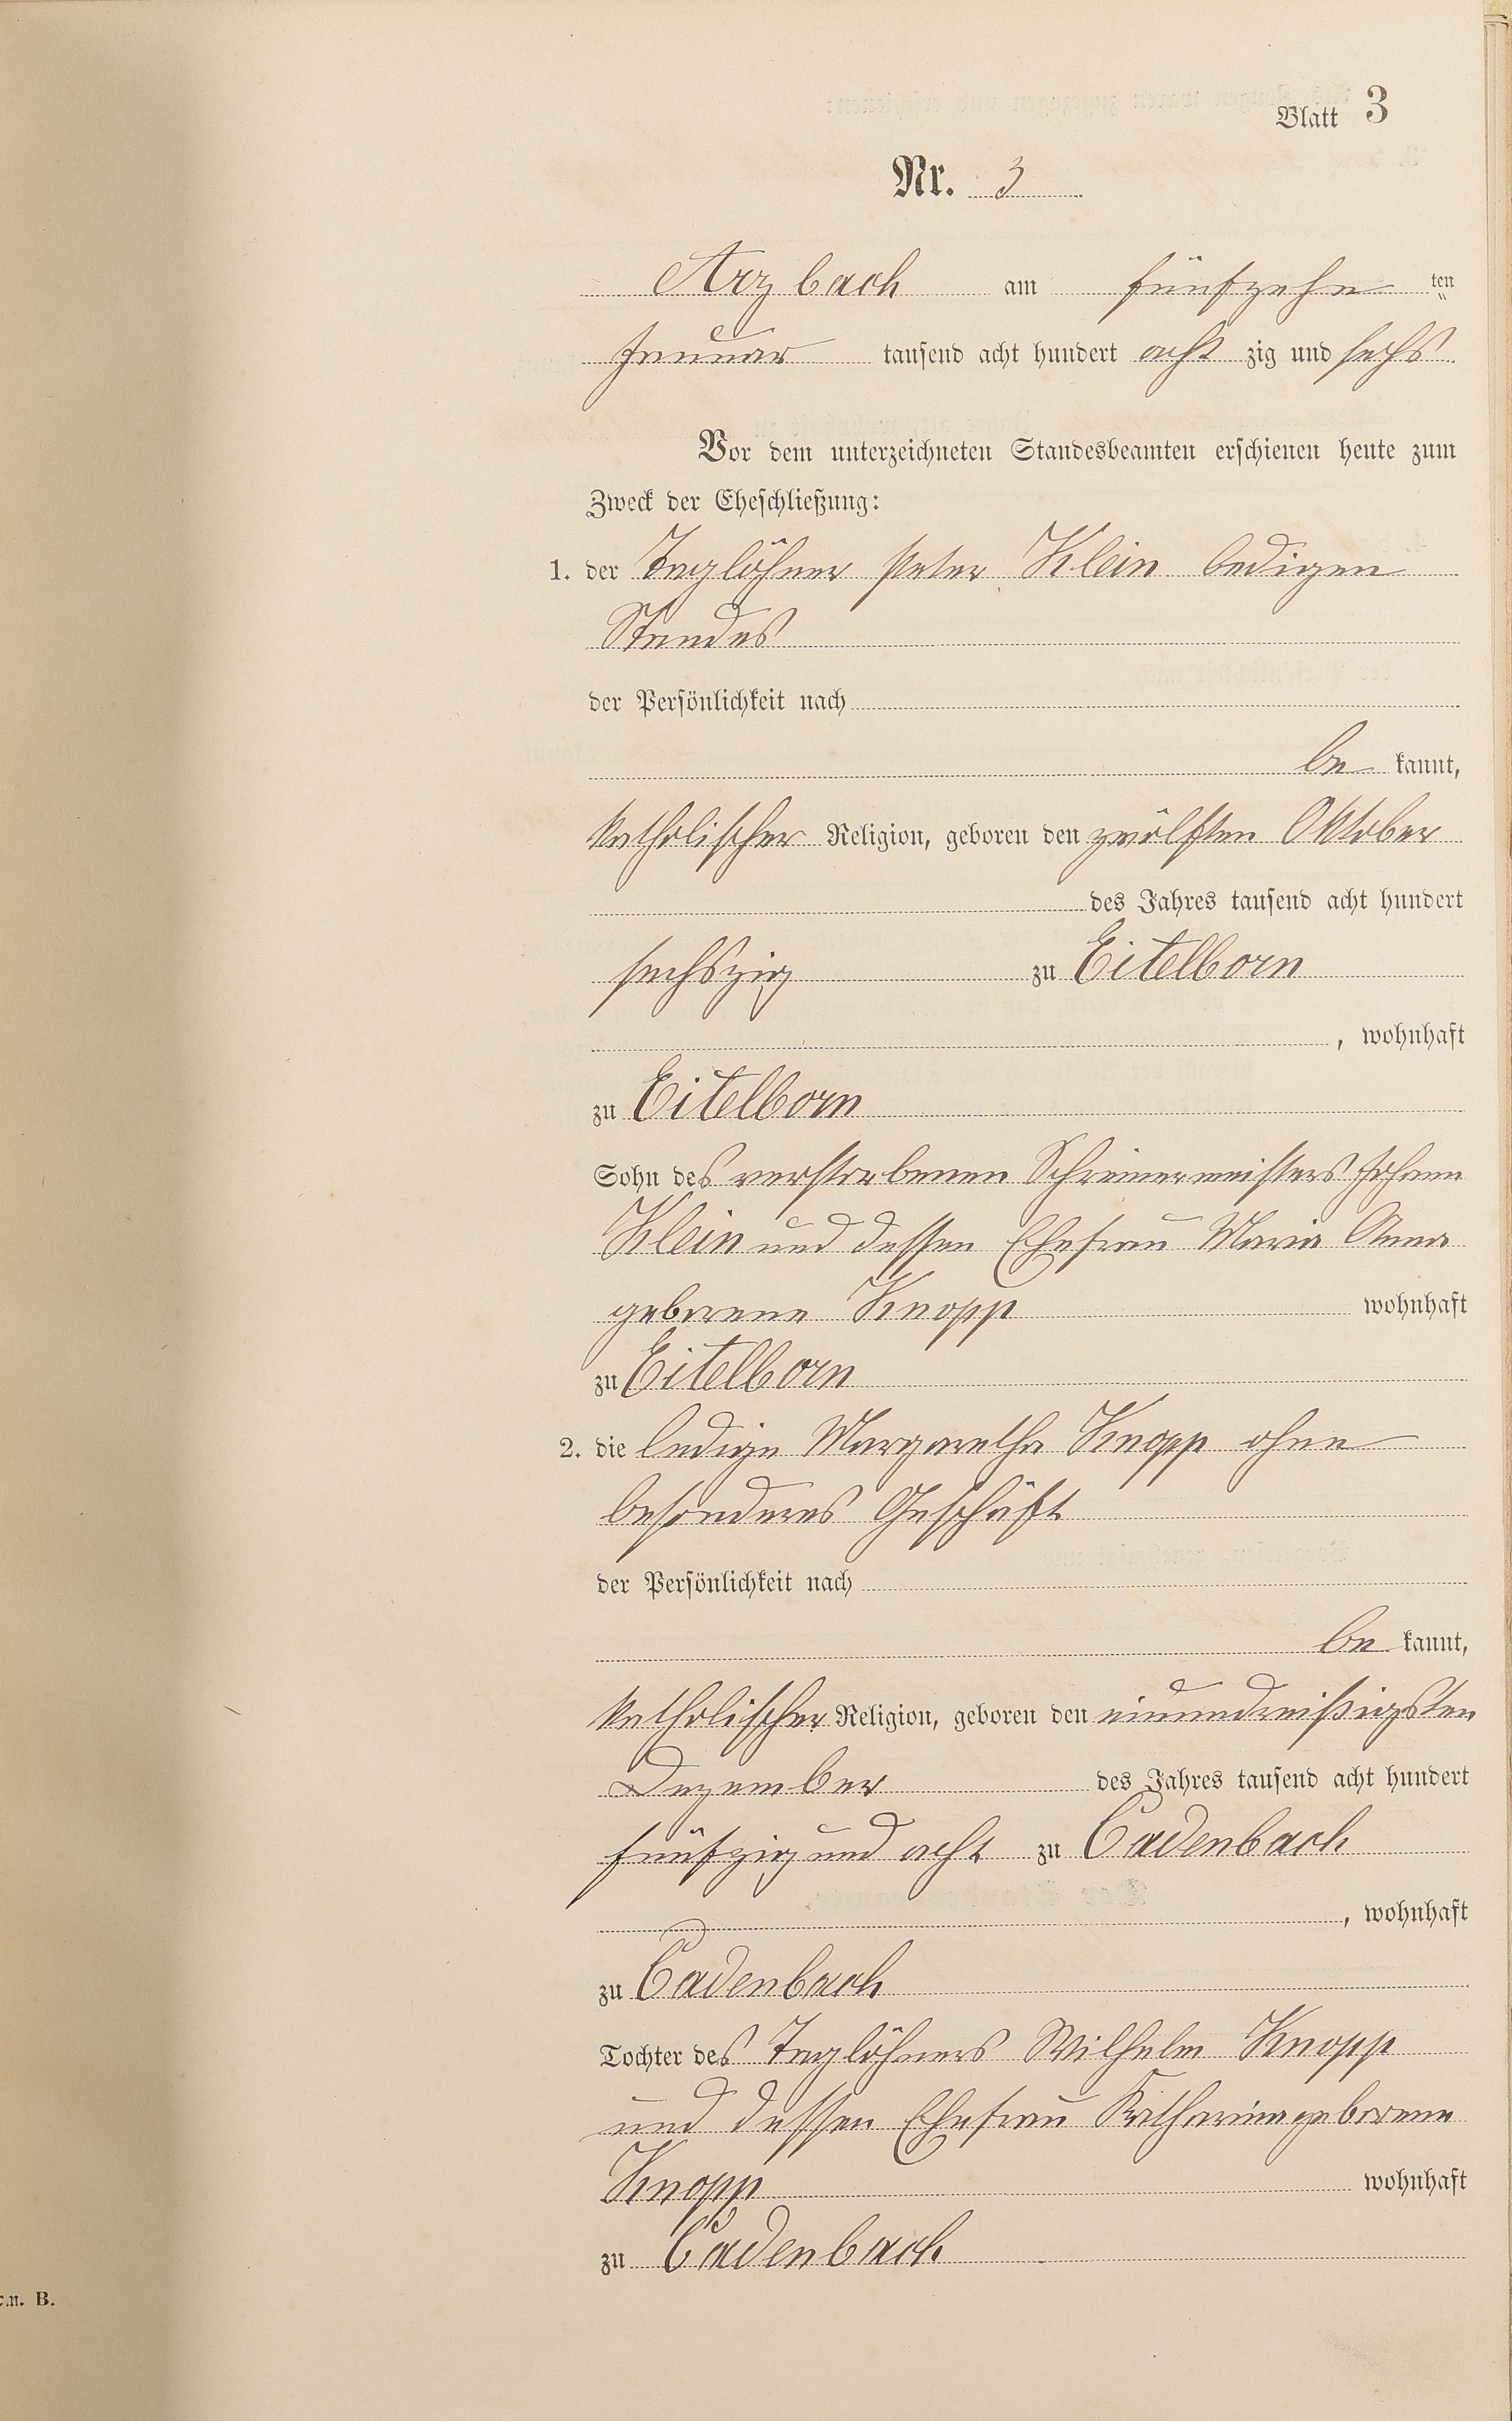 Blatt 3
Nr. 3
Arzbach am fünfzehn ten
Januar tausend acht hundert acht zig und sechs
Vor dem unterzeichneten Standesbeamten erschienen heute zum
Zweck der Eheschließung:
1. der Taglöhner Peter Klein ledigen
Standes
der Persönlichkeit nach
be kannt,
katholischer Religion, geboren den zwölften Oktober
des Jahres tausend acht hundert
sechszig zu Eitelborn
, wohnhaft
zu Eitelborn
Sohn des verstorbenen Schreinermeisters Johann
Klein und dessen Ehefrau Maria Anna
geborene Knopp wohnhaft
zu Eitelborn
2. die ledige Margaretha Knopp ohne
besonderes Geschäft
der Persönlichkeit nach
be kannt,
katholischer Religion, geboren den einunddreißigsten
Dezember des Jahres tausend acht hundert
fünfzig und acht zu Cadenbach
, wohnhaft
zu Cadenbach
Tochter des Taglöhners Wilhelm Knopp
und dessen Ehefrau Katharina geborene
Knopp wohnhaft
zu Cadenbach
B.